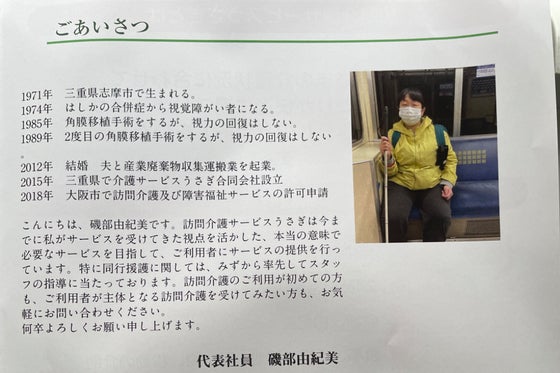 ごあいさつ
1971年　三重県志摩市で生まれる。
1974年　はしかの合併症から視覚障がい者になる。
1985年　角膜移植手術をするが、視力の回復はしない。
1989年　2度目の角膜移植手術をするが、視力の回復はしない
。
2012年　結婚　夫と産業廃棄物収集運搬業を起業。
2015年　三重県で介護サービスうさぎ合同会社設立
2018年　大阪市で訪問介護及び障害福祉サービスの許可申請
こんにちは、磯部由紀美です。訪問介護サービスうさぎは今ま
でに私がサービスを受けてきた視点を活かした、本当の意味で
必要なサービスを目指して、ご利用者にサービスの提供を行っ
ています。特に同行援護に関しては、みずから率先してスタッ
フの指導に当たっております。訪問介護のご利用が初めての方
も、ご利用者が主体となる訪問介護を受けてみたい方も、お気
軽にお問い合わせください。
何卒よろしくお願い申し上げます。
代表社員　磯部由紀美